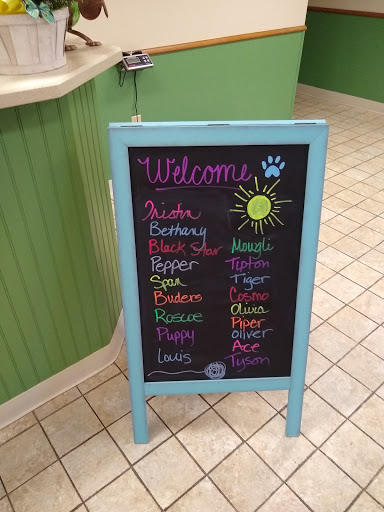 Welcome
Tristin
Bethany
Black Star
Pepper
Span
Buders
Roscoe
Puppy
Louis
Mowgli
Tipton
Tiger
Cosmo
Olivia
Piper
oliver
Ace
Tyson